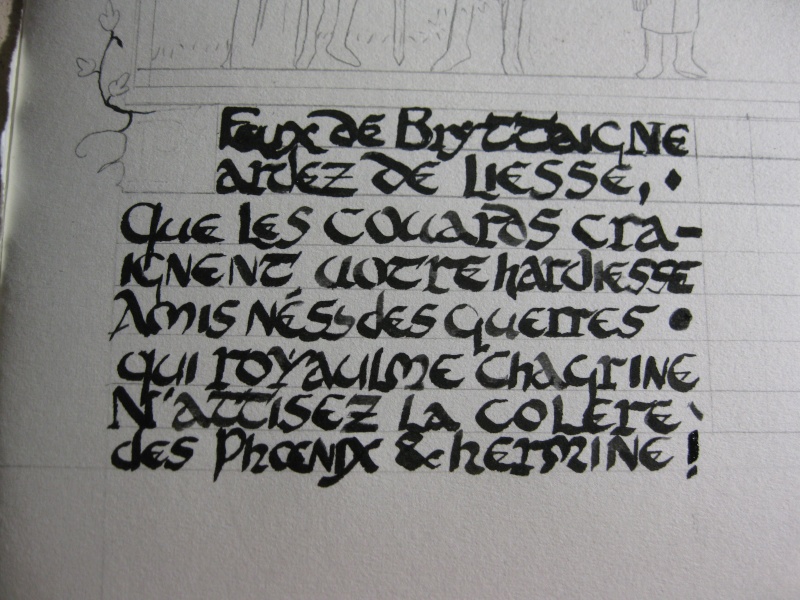 Feux de Bryttaigne
ardez de Liesse,
Que les couards cra-
ignent uotre hardiesse
Amis néss des guerres •
qui royaulme chagrine
N'attisez la colere
des Phoenix & hermine !